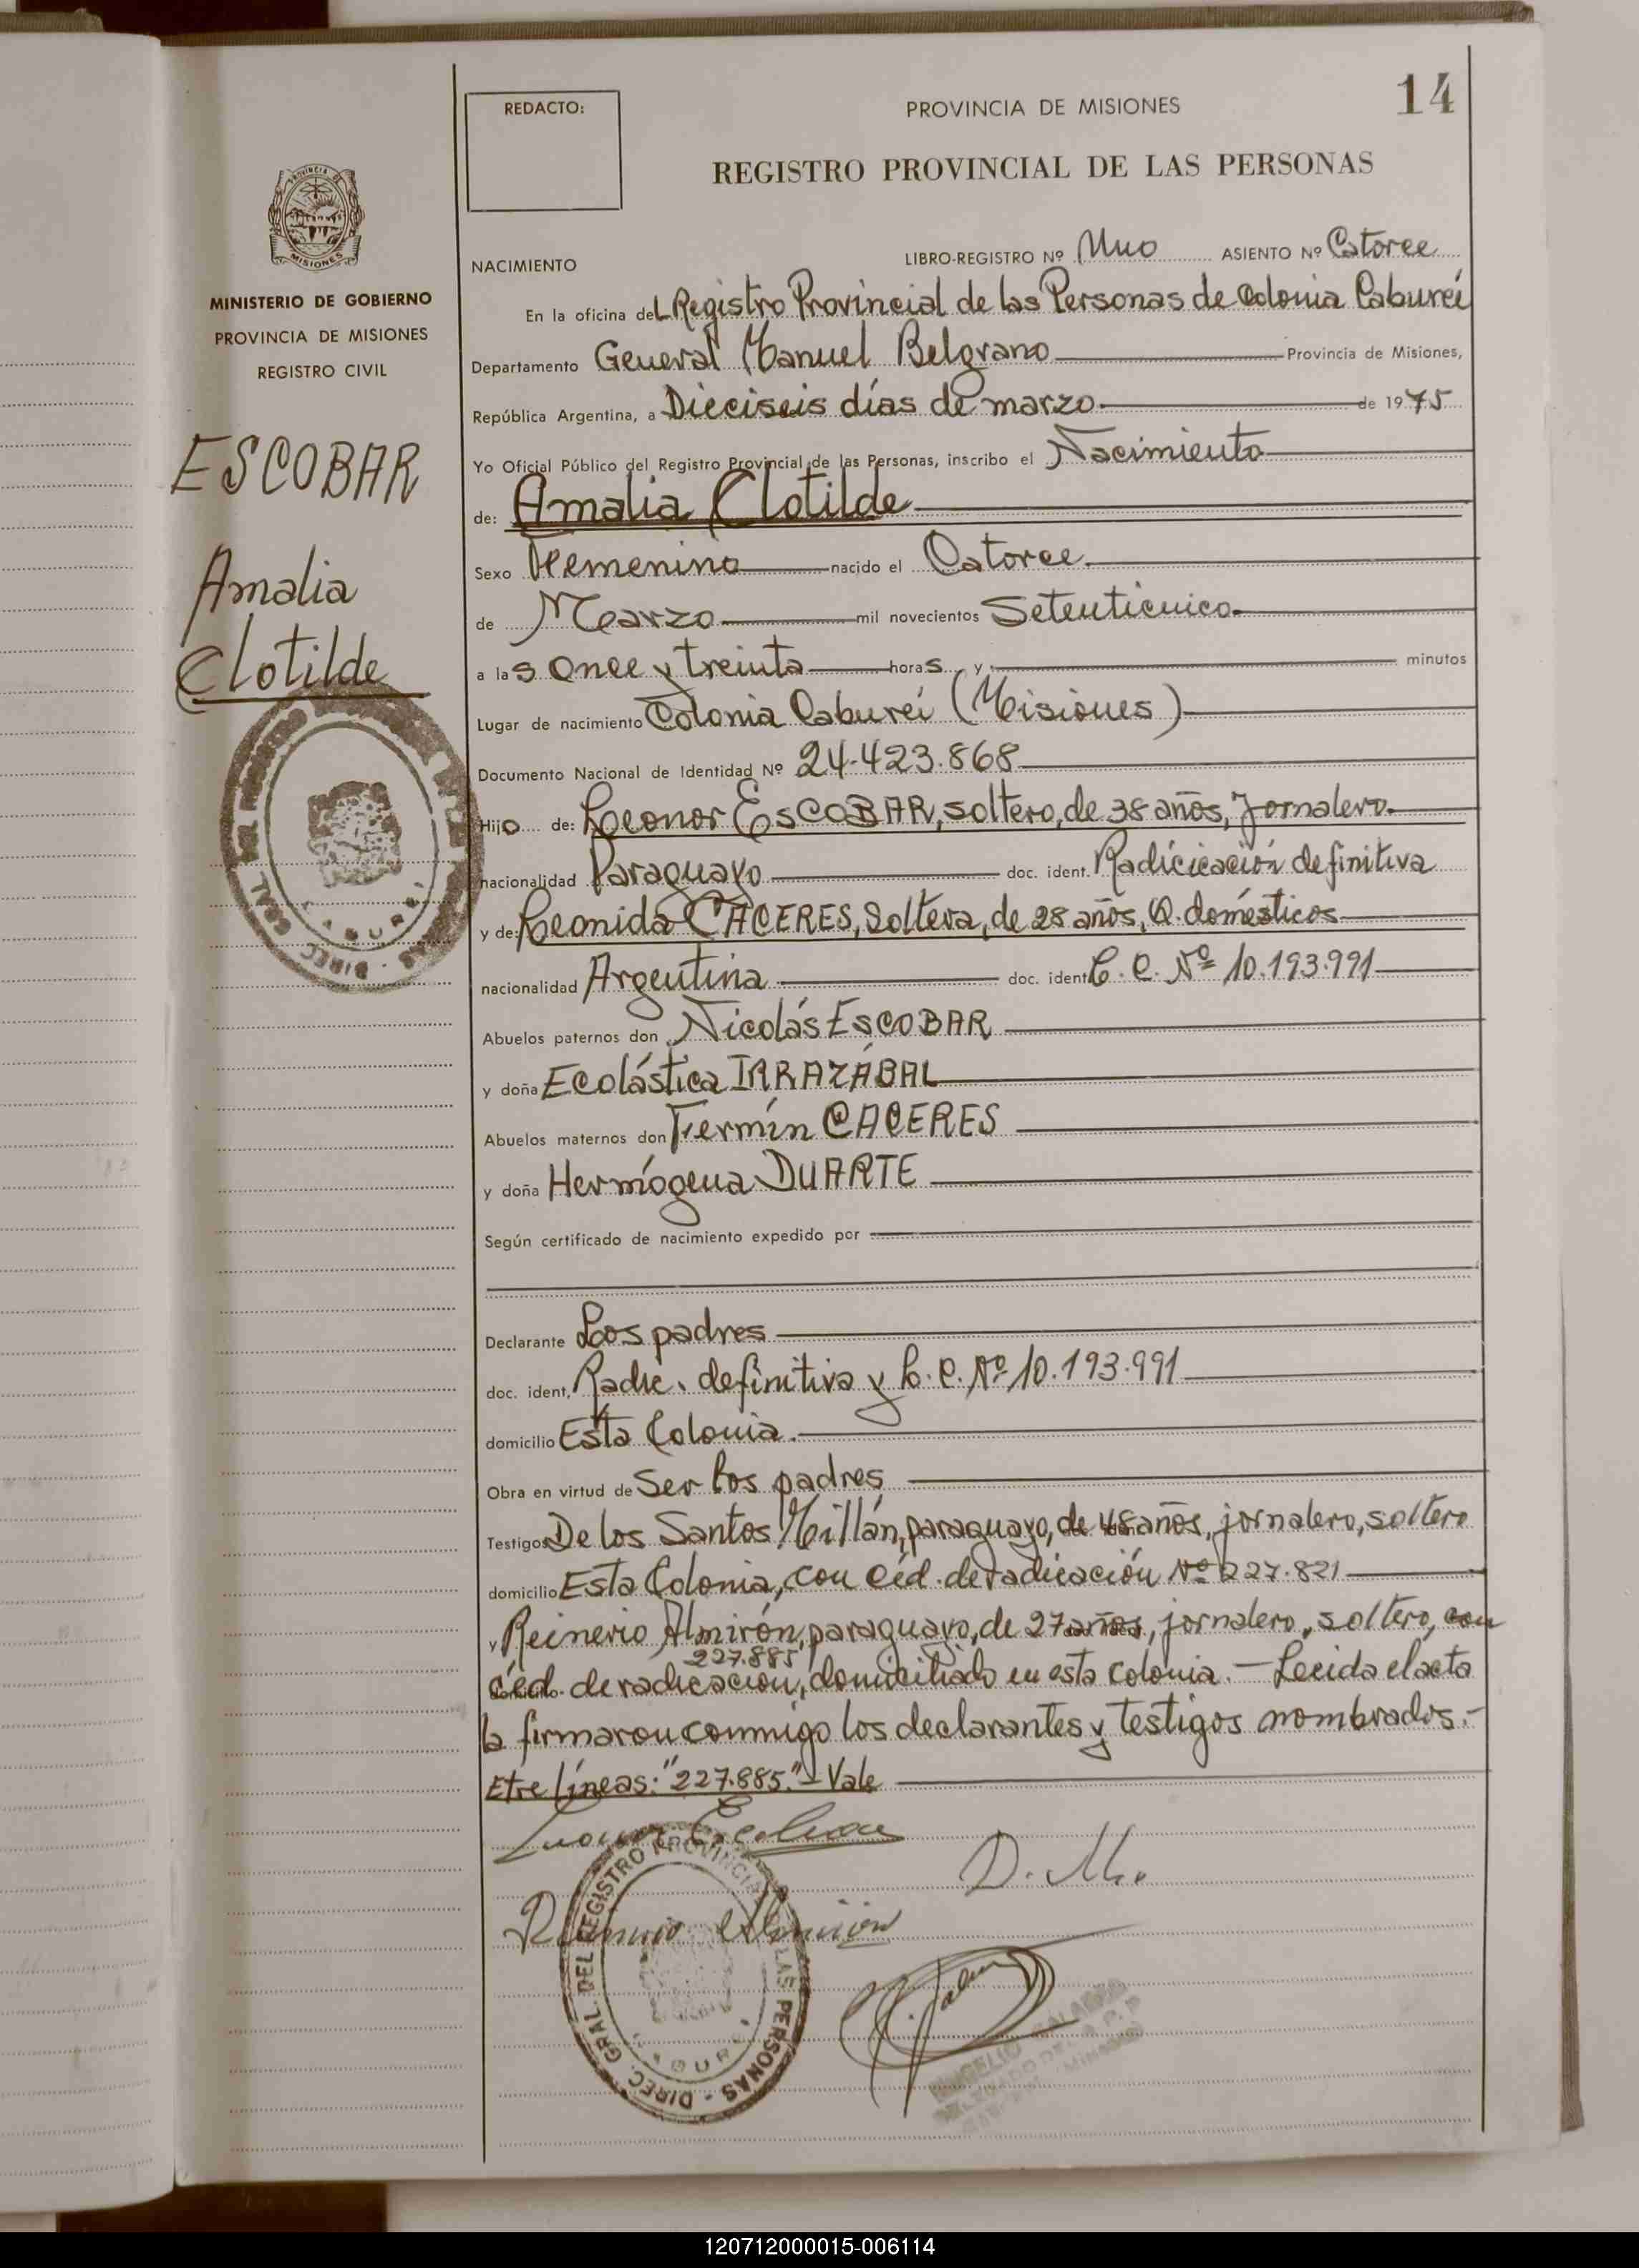 14
REDACTO:
PROVINCIA DE MISIONES
REGISTRO PROVINCIAL DE LAS PERSONAS
MISIONES
MINISTERIO DE GOBIERNO
PROVINCIA DE MISIONES
REGISTRO CIVIL
ESCOBAR
Amalia
Clotilde
NACIMIENTO LIBRO-REGISTRO Nº Uno ASIENTO Nº Catorce
En la oficina deL Registro Provincial de las Personas de Colonia Caburei
Departamento General Manuel Belgrano Provincia de Misiones,
República Argentina, a Dieciseis días de marzo de 1975
Yo Oficial Público del Registro Provincial de las Personas, inscribo el Nacimiento
de: Amalia Clotilde
Sexo Femenino nacido el Catorce
de Marzo mil novecientos Setenticinco
a las Once y treinta horas y minutos
Lugar de nacimiento Colonia Caburei (Misiones)
Documento Nacional de Identidad Nº 24.423.868
Hijo de: Leonor EsCOBAR, soltero, de 38 años, Jornalero.
nacionalidad Paraguayo doc. ident. Radicicación definitiva
y de: Leonida CACERES, Soltera, de 28 años, Q. domésticos
nacionalidad Argentina doc. ident C.C. Nº 10.193.991
Abuelos paternos don Nicolás EsCOBAR
y doña Ecolástica IRRAZÁBAL
Abuelos maternos don Fermín CACERES
y doña Hermógena DUARTE
Según certificado de nacimiento expedido por
Declarante Los padres
doc. ident, Radic. definitiva y C.C. Nº 10.193.991
domicilio Esta Colonia.
Obra en virtud de Ser los padres
Testigos De los Santos Millán, paraguayo, de 48 años, jornalero, soltero
domicilio Esta Colonia, con céd. de radicación Nº 227.821
y Reinerio Almirón, paraguayo, de 27 años, jornalero, soltero, con
227.885
céd. de radicación, domiciliado en esta colonia. — Leeida el acta
la firmaron conmigo los declarantes y testigos nombrados.-
Etre líneas: "227.885." - Vale
D. M.
Almirón
DIREC. GRAL. DEL REGISTRO PROVINCIAL LAS PERSONAS
120712000015-006114